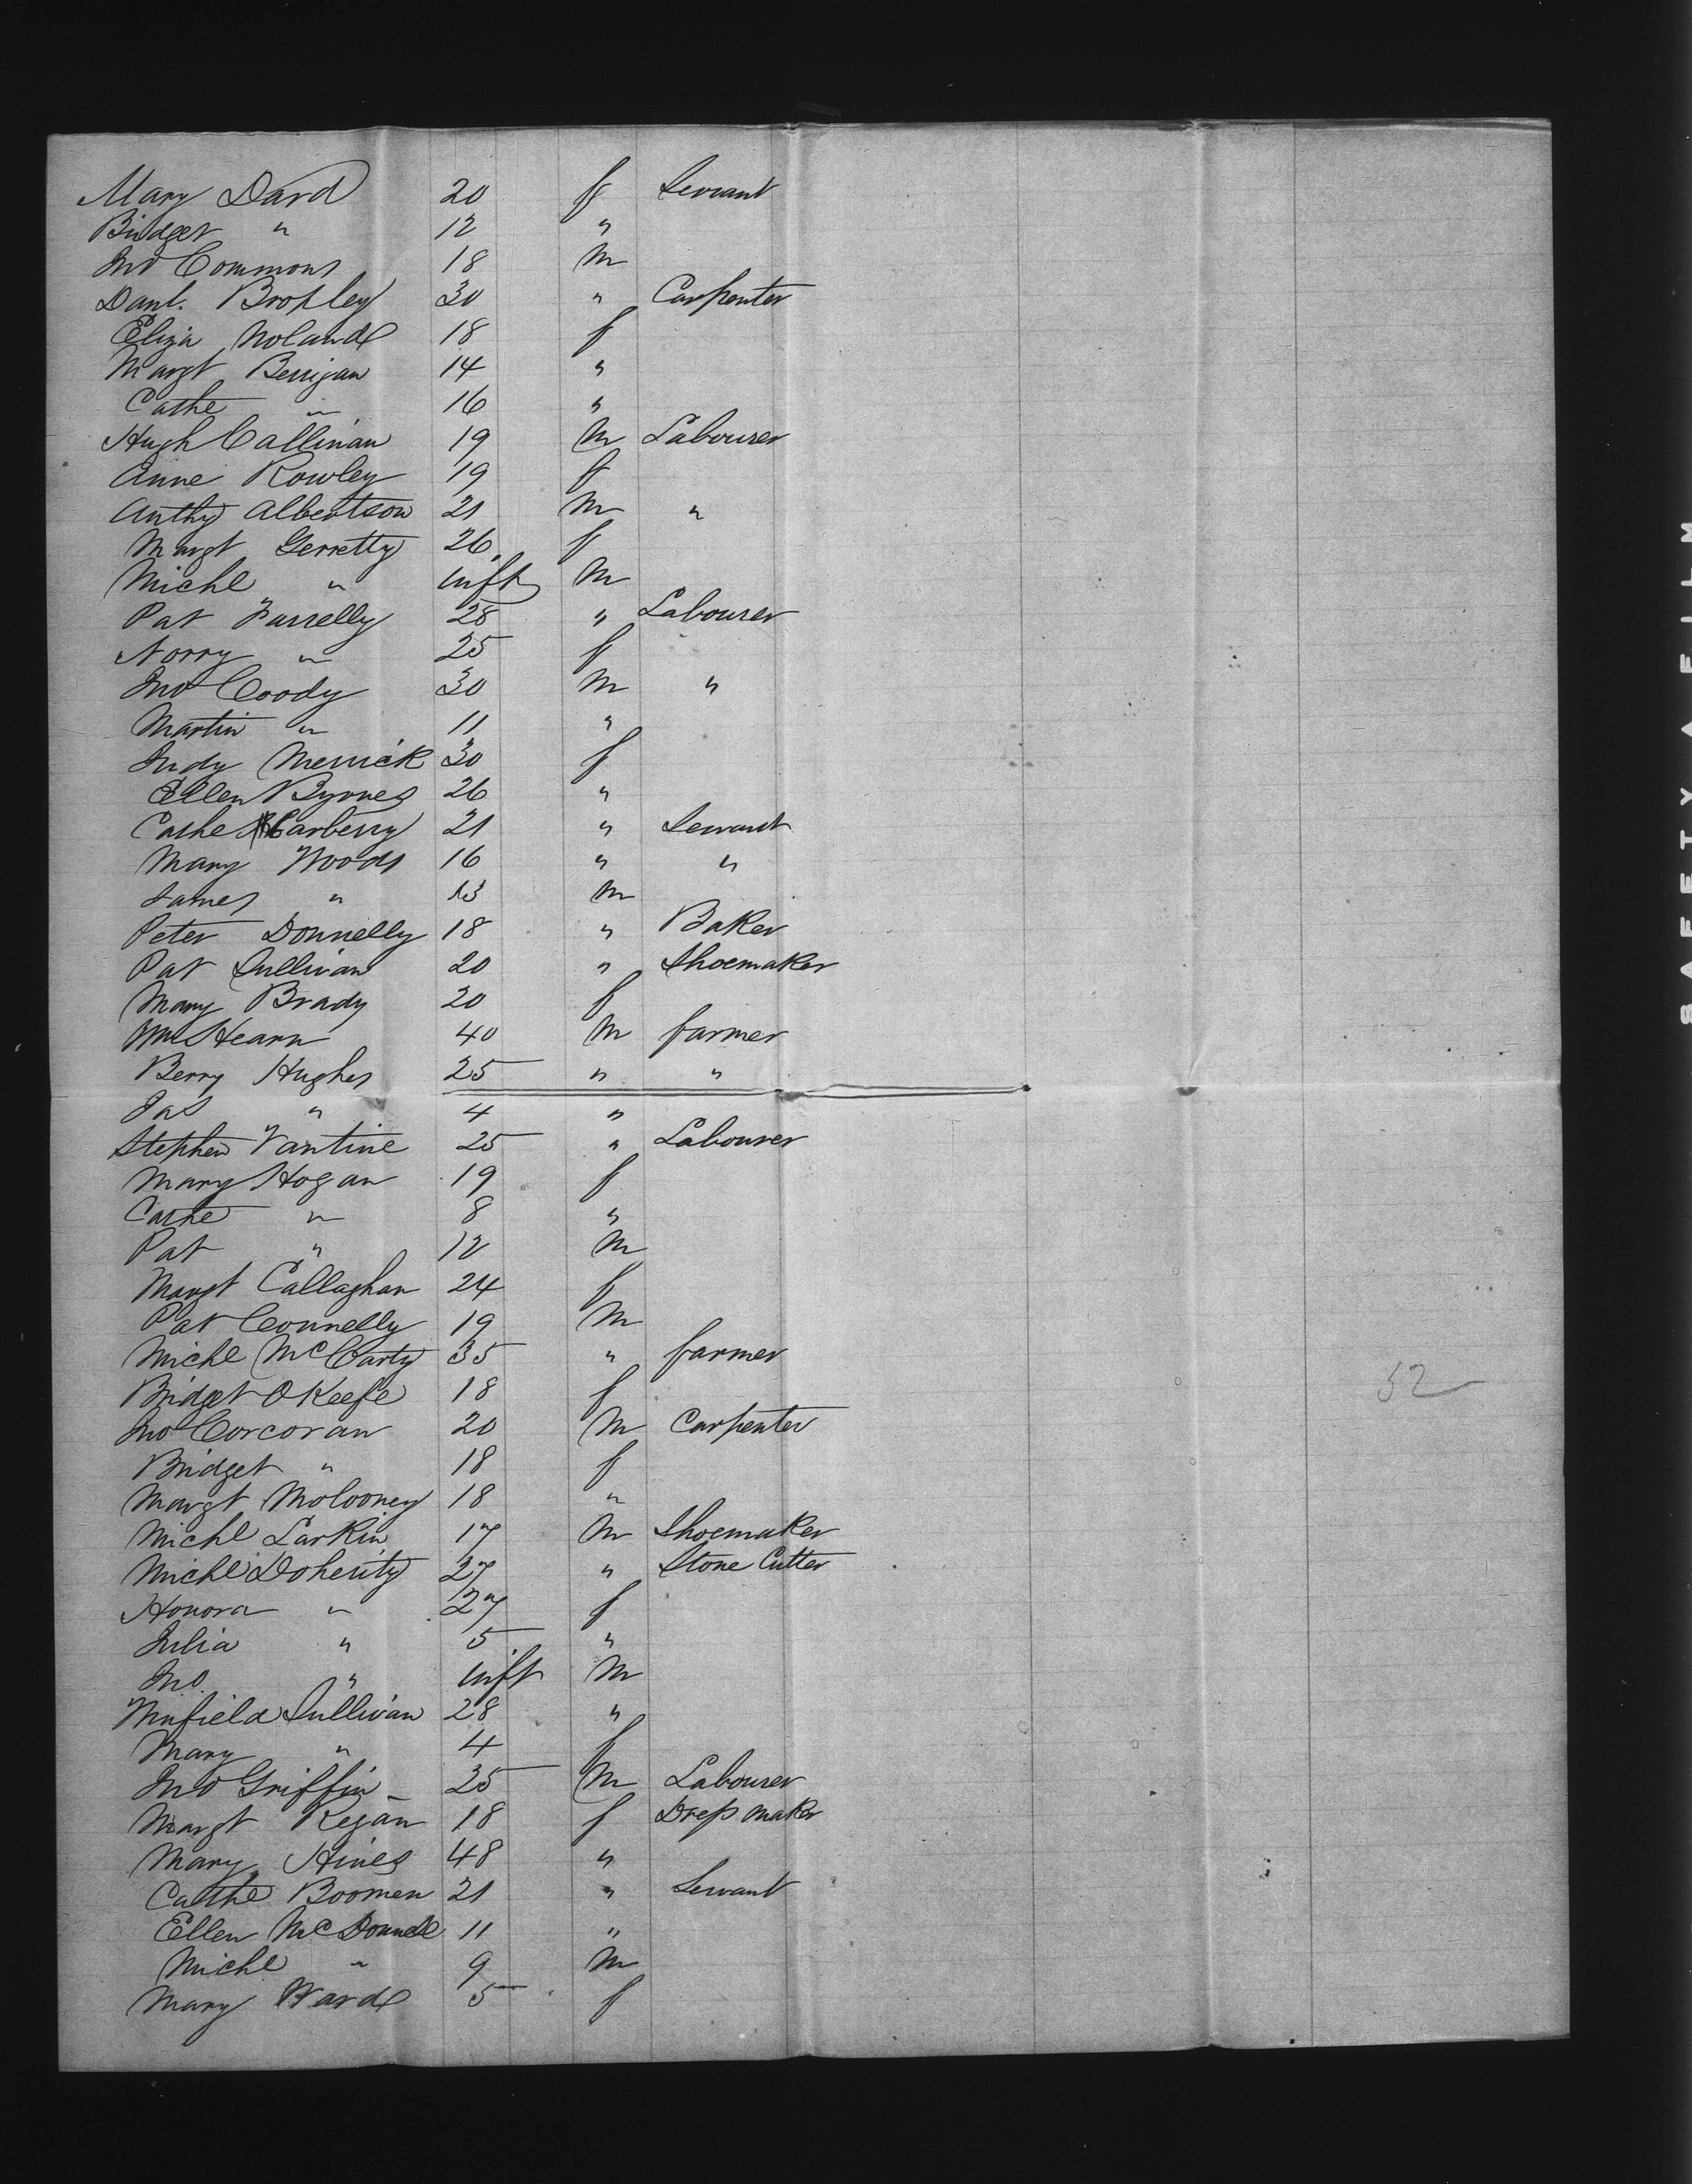 Mary Dard 20 f Servant
Bridget " 12 "
Jno Commons 18 m
Danl. Brophey 30 " Carpenter
Eliza Noland 18 f
Margt Berrigan 14 "
Cathe " 16 "
Hugh Callinan 19 m Labourer
Anne Rowley 19 f
Anthy Albertson 21 m "
Margt Gerretty 26 f
Michl " inft m
Pat Farrelly 28 " Labourer
Norry " 25 f
Jno Coody 30 m "
Martin " 11 "
Judy Merrick 30 f
Ellen Byrnes 26 "
Cathe Carberry 21 " Servant
Mary Woods 16 " "
James " 13 m
Peter Donnelly 18 " Baker
Pat Sullivan 20 " Shoemaker
Mary Brady 20 f
Wm Hearn 40 m farmer
Berry Hughes 25 " "
Jas " 4 "
Stephen Vantine 25 " Labourer
Mary Hogan 19 f
Cathe " 8 "
Pat " 12 m
Margt Callaghan 24 f
Pat Connelly 19 m
Michl McCarty 35 " farmer
Bridget O Keefe 18 f
Jno Corcoran 20 m Carpenter
Bridget " 18 f
Margt Molooney 18 "
Michl Larkin 17 m Shoemaker
Michl Doherity 27 " Stone Cutter
Honora " 27 f
Julia " 5 "
Jno. " inft m
Winfield Sullivan 28 "
Mary " 4 f
Jno Griffin 25 m Labourer
Margt Regan 18 f Dress maker
Mary Hines 48 "
Cathe Boomen 21 " Servant
Ellen McDonnell 11 "
Michl " 9 m
Mary Ward 5 f
52
SAFETY A FILM